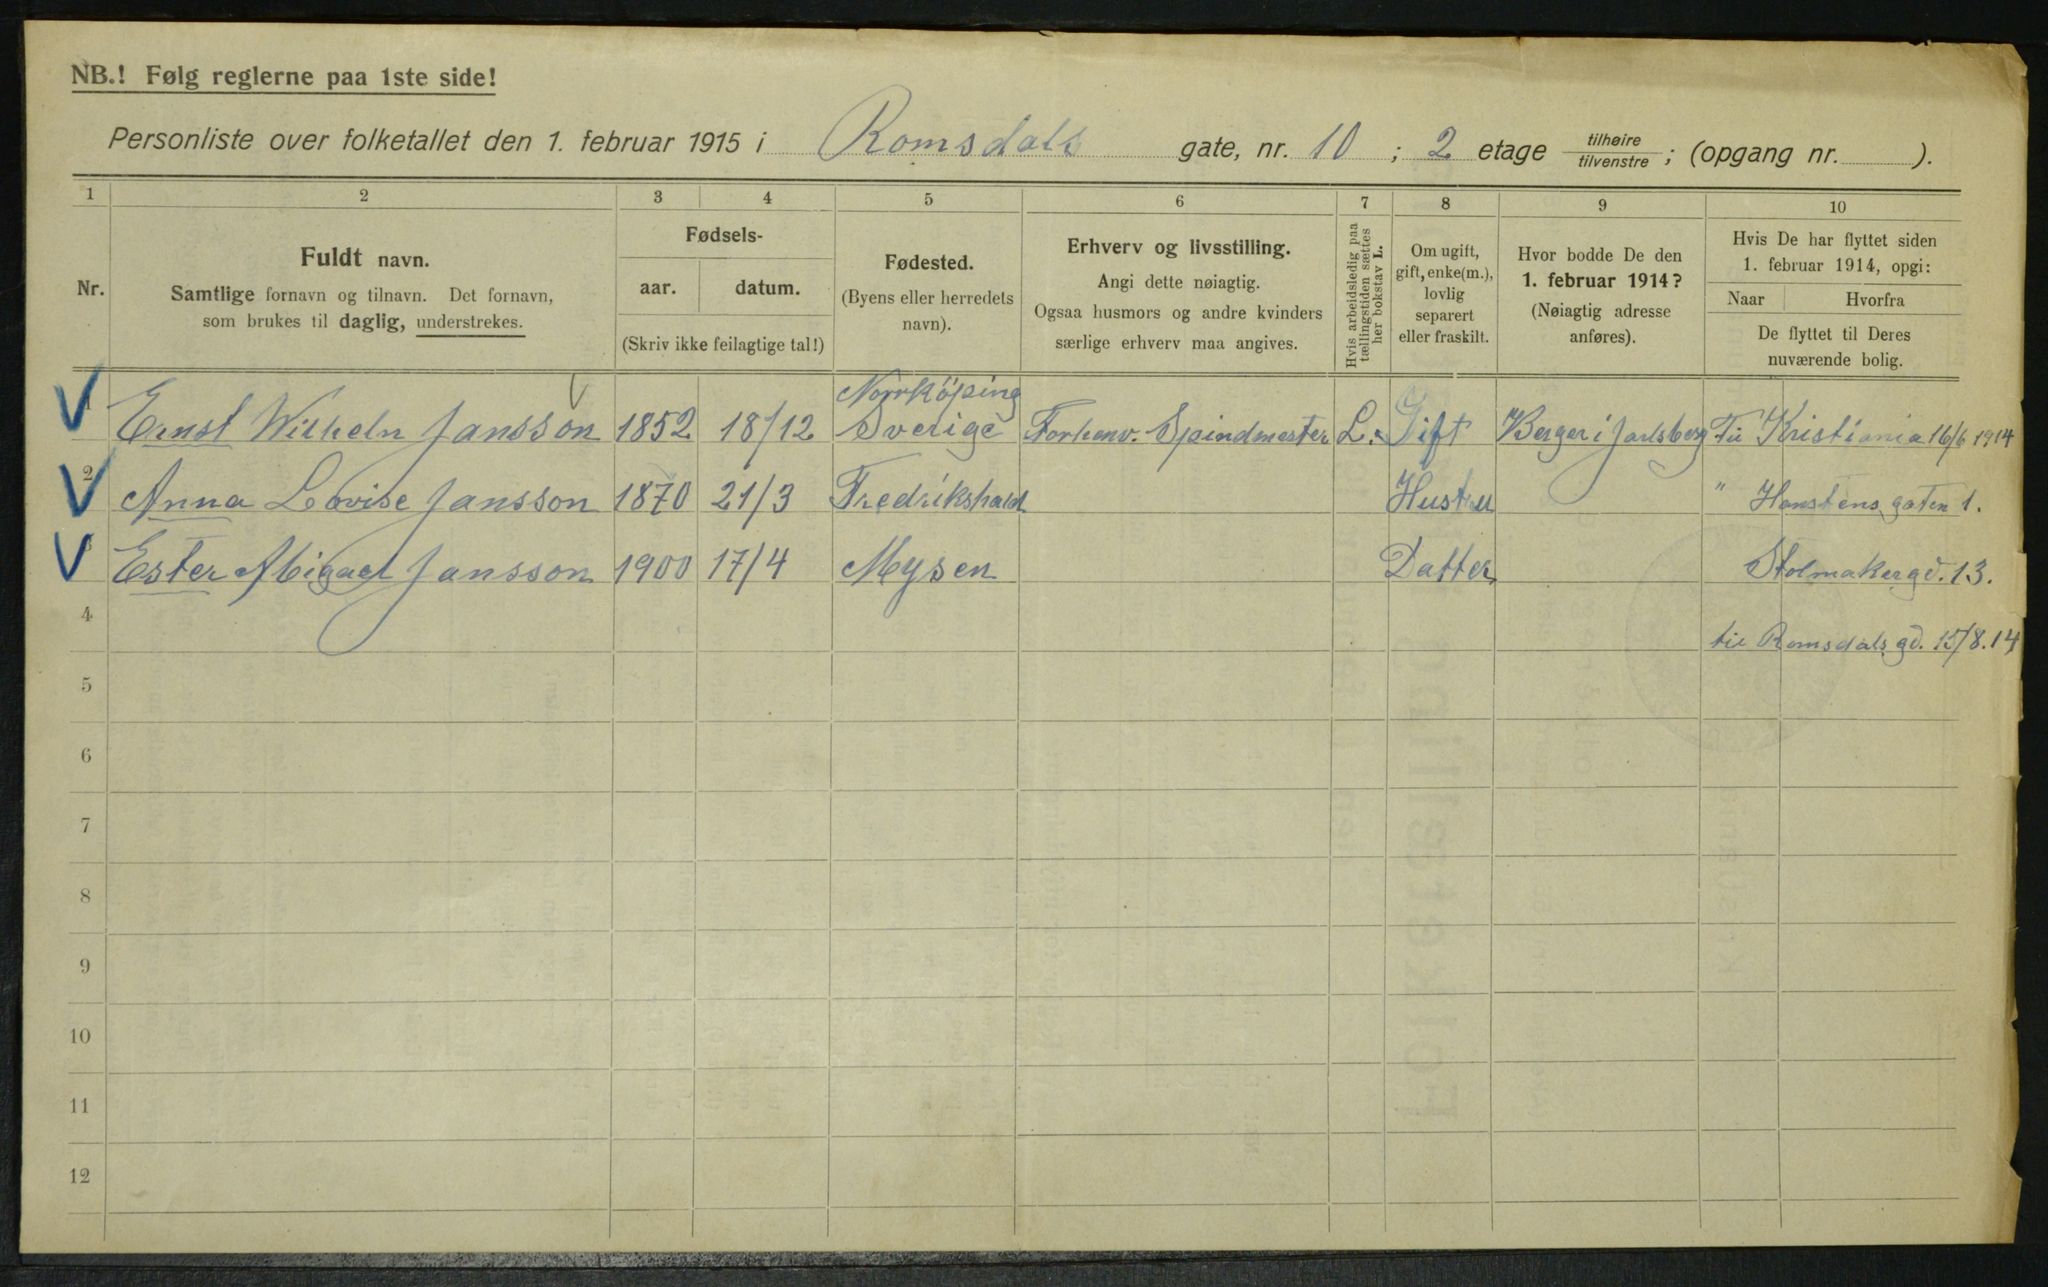 NB.! Følg reglerne paa 1ste side!
Personliste over folketallet den 1. februar 1915 i Romsdals gate, nr. 10 ; 2 etage tilhøire tilvenstre ; (opgang nr. ).
1 2 3 4 5 6 7 8 9 10
Nr.
Fuldt navn.
Samtlige fornavn og tilnavn. Det fornavn,
som brukes til daglig, understrekes.
Fødsels-
aar. datum.
(Skriv ikke feilagtige tal!)
Fødested.
(Byens eller herredets
navn).
Erhverv og livsstilling.
Angi dette nøiagtig.
Ogsaa husmors og andre kvinders
særlige erhverv maa angives.
Hvis arbeidsledig paa
tællingstiden sættes
her bokstav L.
Om ugift,
gift, enke(m.),
lovlig
separert
eller fraskilt.
Hvor bodde De den
1. februar 1914?
(Nøiagtig adresse
anføres).
Hvis De har flyttet siden
1. februar 1914, opgi:
Naar Hvorfra
De flyttet til Deres
nuværende bolig.
Norrköping
1 Ernst Wilhelm Jansson 1852 18/12 Sverige Forhenv. Spindmester L. Gift Berger i Jarlsberg Til Kristiania 16/6 1914
2 Anna Lovise Jansson 1870 21/3 Fredrikshald Hustru " Hanstens gaten 1.
3 Ester Abigael Jansson 1900 17/4 Mysen Datter Stolmakergd. 13.
4 til Romsdals gd. 15/8.14
5
6
7
8
9
10
11
12